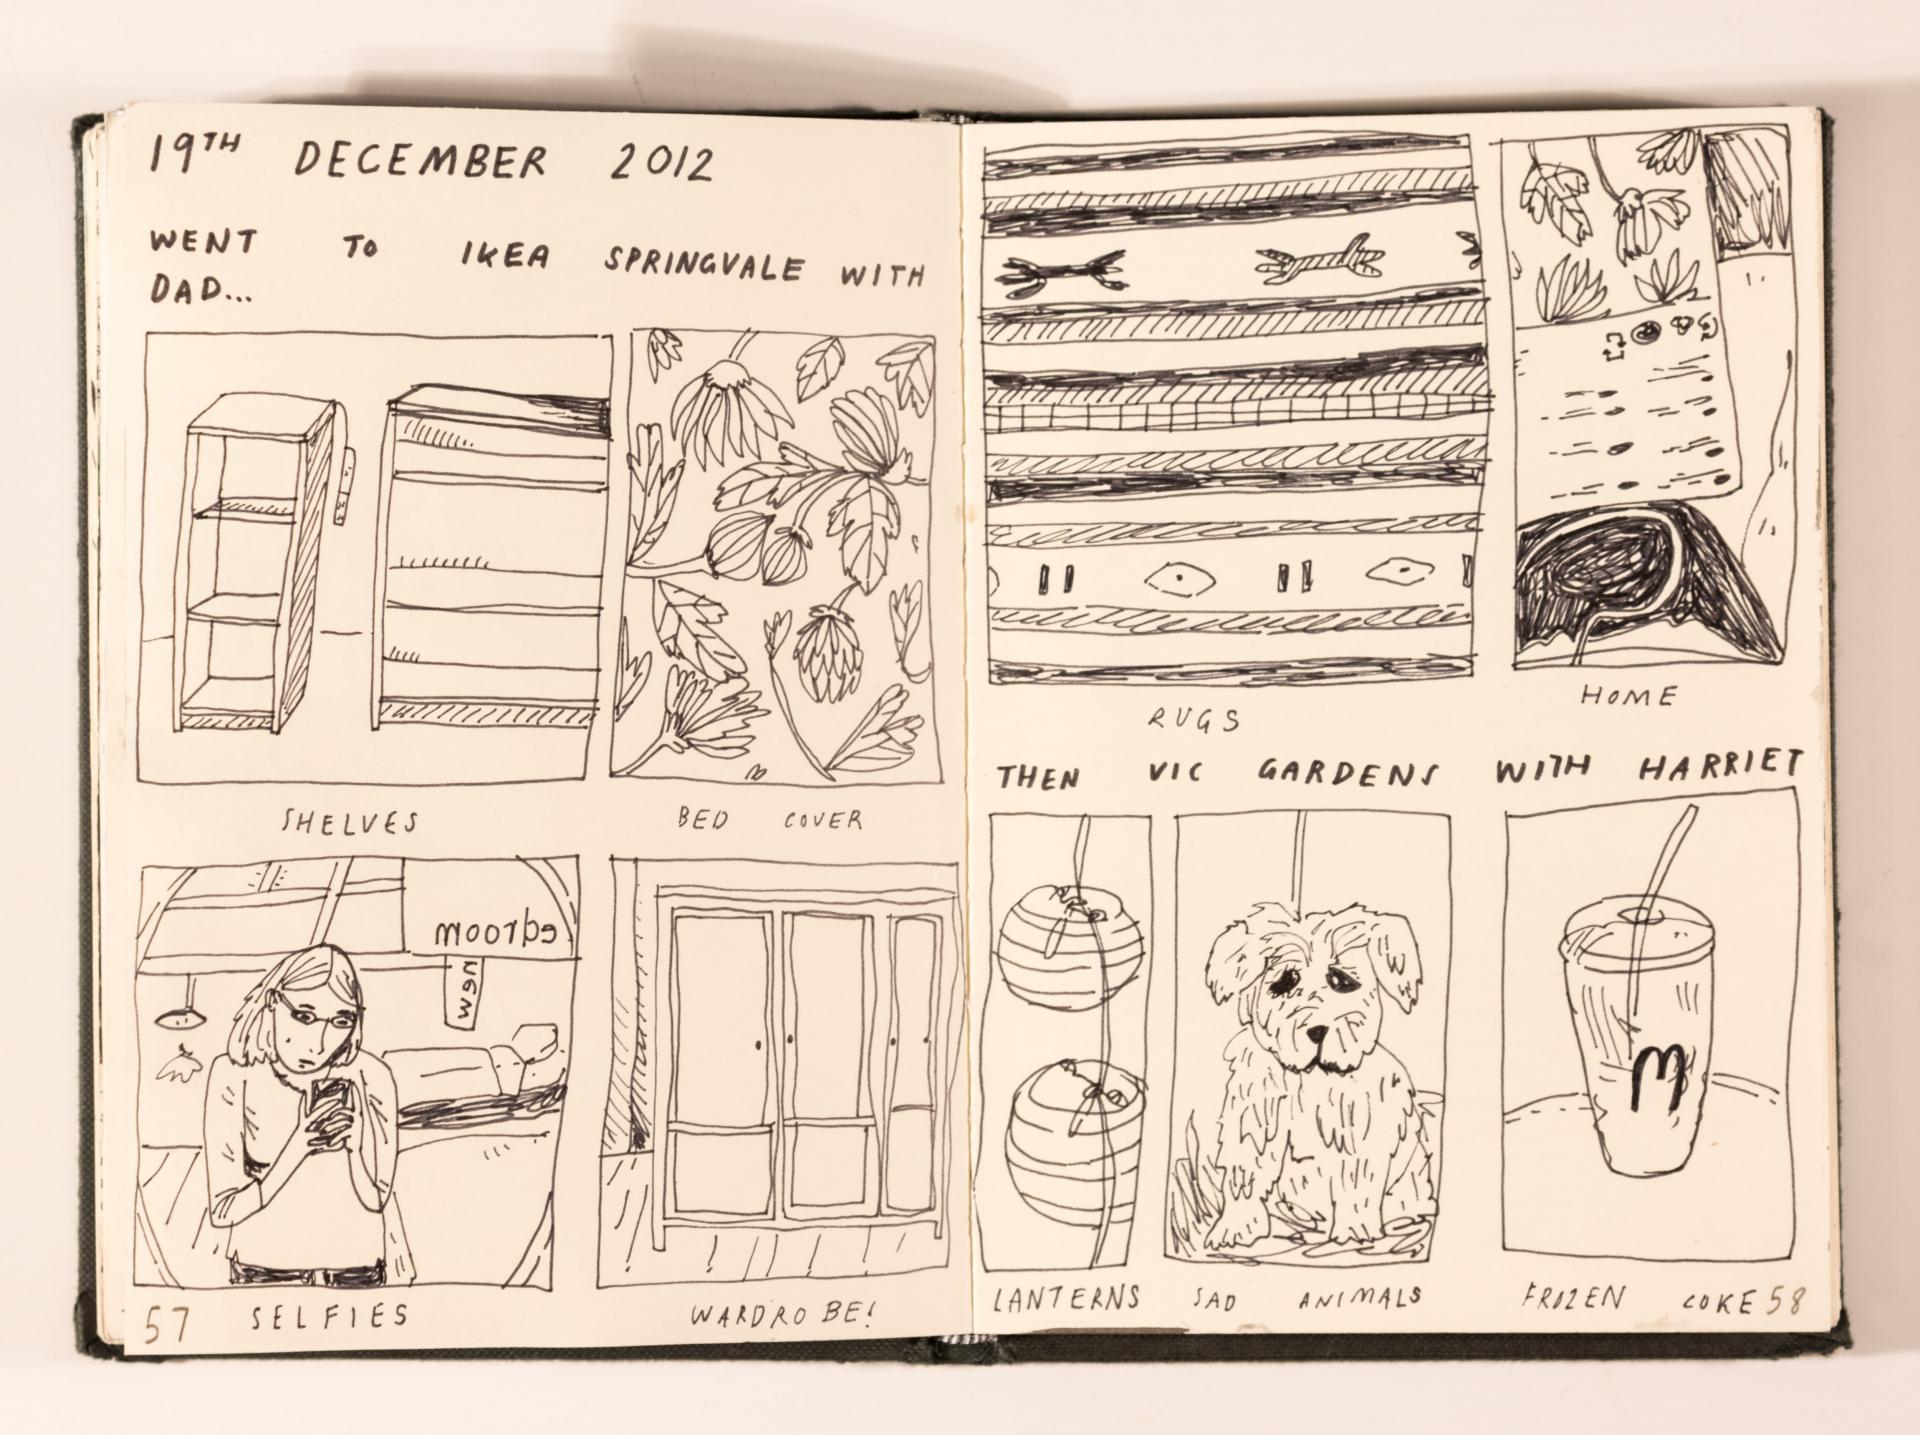 19TH DECEMBER 2012
WENT TO IKEA SPRINGVALE WITH
DAD...
SHELVES
BED COVER
edroom
new
SELFIES
WARDROBE!
57
RUGS
HOME
THEN VIC GARDENS WITH HARRIET
M
LANTERNS
SAD ANIMALS
FROZEN COKE
58